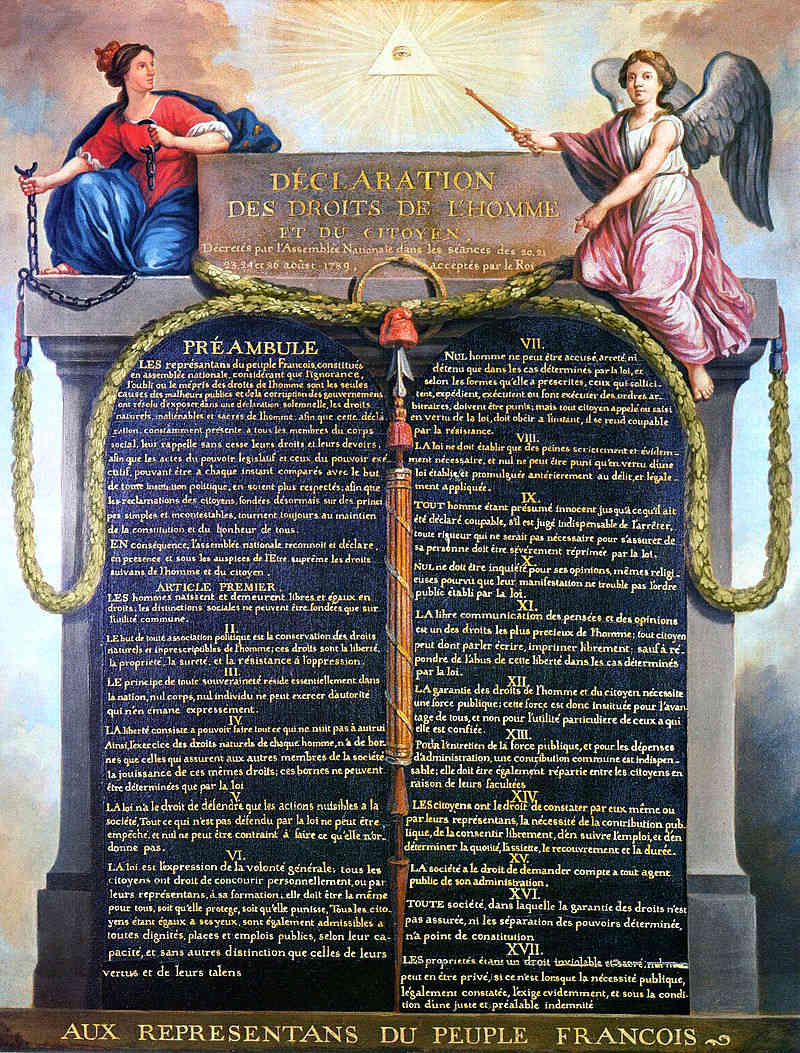 DÉCLARATION
DES DROITS DE L'HOMME
ET DU CITOYEN,
Décretés par l'Assemblée Nationale dans les séances des 20, 21
23, 24 et 26 aoûst 1789, acceptés par le Roi
PRÉAMBULE
LES représentans du peuple François, constitués
en assemblée nationale, considérant que l'ignorance,
l'oubli ou le mépris des droits de l'homme sont les seules
causes des malheurs publics et de la corruption des gouvernemens
ont résolu d'exposer dans une déclaration solemnelle, les droits
naturels, inaliénables et sacrés de l'homme; afin que cette décla
ration, constamment présente a tous les membres du corps
social, leur rappelle sans cesse leurs droits et leurs devoirs;
afin que les actes du pouvoir législatif et ceux du pouvoir exé-
cutif, pouvant être a chaque instant comparés avec le but
de toute institution politique, en soient plus respectés; afin que
les réclamations des citoyens, fondées désormais sur des prin
pes simples et incontestables, tournent toujours au maintien
de la constitution et du bonheur de tous.
EN conséquence, l'assemblée nationale reconnoit et déclare,
en présence et sous les auspices de l'Etre suprême les droits
suivans de l'homme et du citoyen.
ARTICLE PREMIER
LES hommes naissent et demeurent libres et égaux en
droits; les distinctions sociales ne peuvent être fondées que sur
l'utilité commune.
II.
LE but de toute association politique est la conservation des droits
naturels et inprescriptibles de l'homme; ces droits sont la liberté,
la propriété, la sureté, et la résistance à l'oppression.
III.
LE principe de toute souveraineté réside essentiellement dans
la nation, nul corps, nul individu ne peut exercer d'autorité
qui n'en émane expressement.
IV.
LA liberté consiste a pouvoir faire tout ce qui ne nuit pas à autrui
Ainsi, l'exercice des droits naturels de chaque homme, n'a de bor
nes que celles qui assurent aux autres membres de la société
la jouissance de ces mêmes droits; ces bornes ne peuvent
être déterminées que par la loi
V.
LA loi n'a le droit de défendre que les actions nuisibles a la
société, Tout ce qui n'est pas défendu par la loi ne peut être
empêché, et nul ne peut être contraint à faire ce qu'elle n'or-
donne pas.
VI.
LA loi est l'expression de la volonté générale; tous les
citoyens ont droit de concourir personnellement, ou par
leurs représentans, à sa formation; elle doit être la même
pour tous, soit qu'elle protege, soit qu'elle punisse, Tous les cito
yens étant égaux a ses yeux, sont également admissibles a
toutes dignités, places et emplois publics, selon leur ca-
pacité, et sans autres distinction que celles de leurs
vertus et de leurs talens
VII.
NUL homme ne peut être accusé, arreté, ni
détenu que dans les cas déterminés par la loi, et
selon les formes qu'elle a prescrites, ceux qui sollici-
tent, expédient, exécutent ou font exécuter des ordres ar-
bitraires, doivent être punis; mais tout citoyen appelé ou saisi
en vertu de la loi, doit obéir a l'instant, il se rend coupable
par la résistance.
VIII.
LA loi ne doit établir que des peines strictement et évidem-
ment nécessaire, et nul ne peut être puni qu'en vertu d'une
loi établie et promulguée antérierement au délit, et légale
ment appliquée.
IX.
TOUT homme étant présumé innocent jusqu'a ce qu'il ait
été déclaré coupable, s'il est jugé indispensable de l'arrêter,
toute rigueur qui ne serait pas nécessaire pour s'assurer de
sa personne doit être sévèrement réprimée par la loi.
X.
NUL ne doit être inquiété pour ses opinions, mêmes religi-
euses pourvu que leur manifestation ne trouble pas l'ordre
public établi par la loi.
XI.
LA libre communication des pensées et des opinions
est un des droits les plus precieux de l'homme; tout citoyen
peut donc parler écrire, imprimer librement; sauf à ré-
pondre de l'abus de cette liberté dans les cas déterminés
par la loi.
XII.
LA garantie des droits de l'homme et du citoyen nécessite
une force publique; cette force est donc instituée pour l'avan
tage de tous, et non pour l'utilité particuliere de ceux a qui
elle est confiée.
XIII.
Pour l'entretien de la force publique, et pour les dépenses
d'administration, une contribution commune est indispen-
sable; elle doit être également répartie entre les citoyens en
raison de leurs facultées
XIV.
LES citoyens ont le droit de constater par eux même ou
par leurs représentans, la nécessité de la contribution pub-
lique, de la consentir librement, d'en suivre l'emploi, et d'en
déterminer la quotité, l'assiette, le recouvrement et la durée.
XV.
LA société a le droit de demander compte a tout agent
public de son administration.
XVI.
TOUTE société, dans laquelle la garantie des droits n'est
pas assurée, ni les séparation des pouvoirs déterminée,
n'a point de constitution
XVII.
LES proprietés étant un droit inviolable et sacré, nul ne
peut en être privé, si ce n'est lorsque la nécessité publique,
légalement constatée, l'exige evidemment, et sous la condi-
tion d'une juste et préalable indemnité
AUX REPRESENTANS DU PEUPLE FRANCOIS